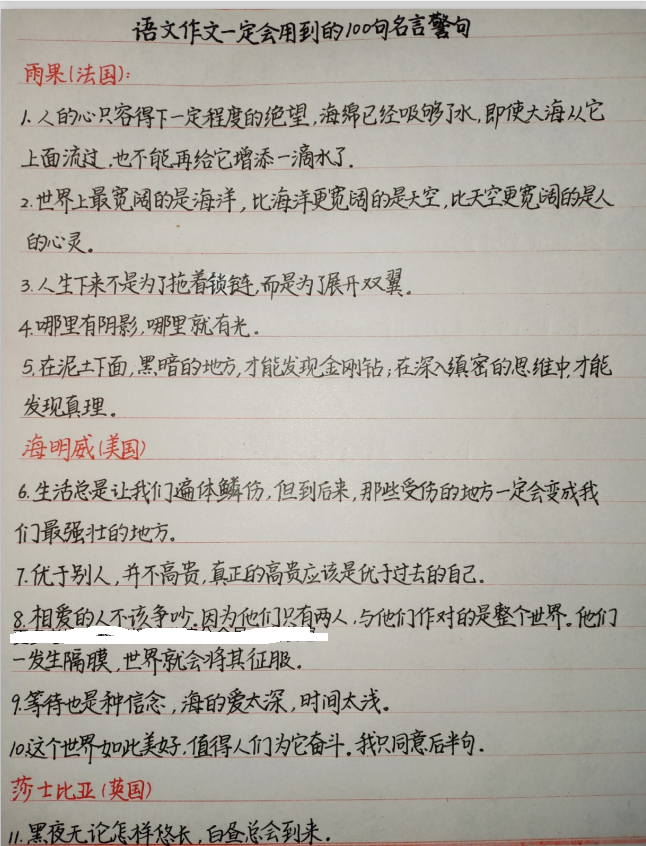 语文作文一定会用到的100句名言警句
雨果(法国):
1.人的心只容得下一定程度的绝望,海绵已经吸够了水,即使大海从它
上面流过,也不能再给它增添一滴水了.
2.世界上最宽阔的是海洋,比海洋更宽阔的是天空,比天空更宽阔的是人
的心灵。
3.人生下来不是为了拖着锁链,而是为了展开双翼。
4.哪里有阴影,哪里就有光。
5.在泥土下面,黑暗的地方,才能发现金刚钻;在深入缜密的思维中,才能
发现真理。
海明威(美国)
6.生活总是让我们遍体鳞伤,但到后来,那些受伤的地方一定会变成我
们最强壮的地方。
7.优于别人,并不高贵,真正的高贵应该是优于过去的自己.
8.相爱的人不该争吵.因为他们只有两人,与他们作对的是整个世界。他们
一发生隔膜,世界就会将其征服.
9.等待也是种信念,海的爱太深,时间太浅。
10.这个世界如此美好,值得人们为它奋斗。我只同意后半句.
莎士比亚(英国)
11.黑夜无论怎样悠长,白昼总会到来.